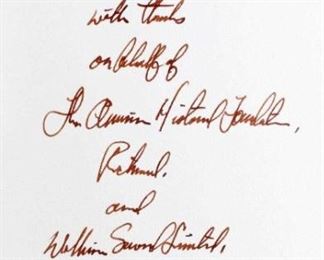 with thanks
on behalf of
The American Historical Foundation,
Richmond,
and
Wilkinson Sword Limited,